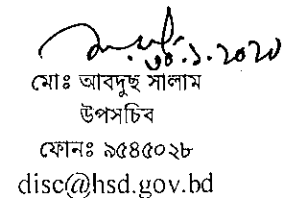 ৩০.১.২০২০
মোঃ আবদুছ সালাম
উপসচিব
ফোনঃ ৯৫৪৫০২৮
disc@hsd.gov.bd